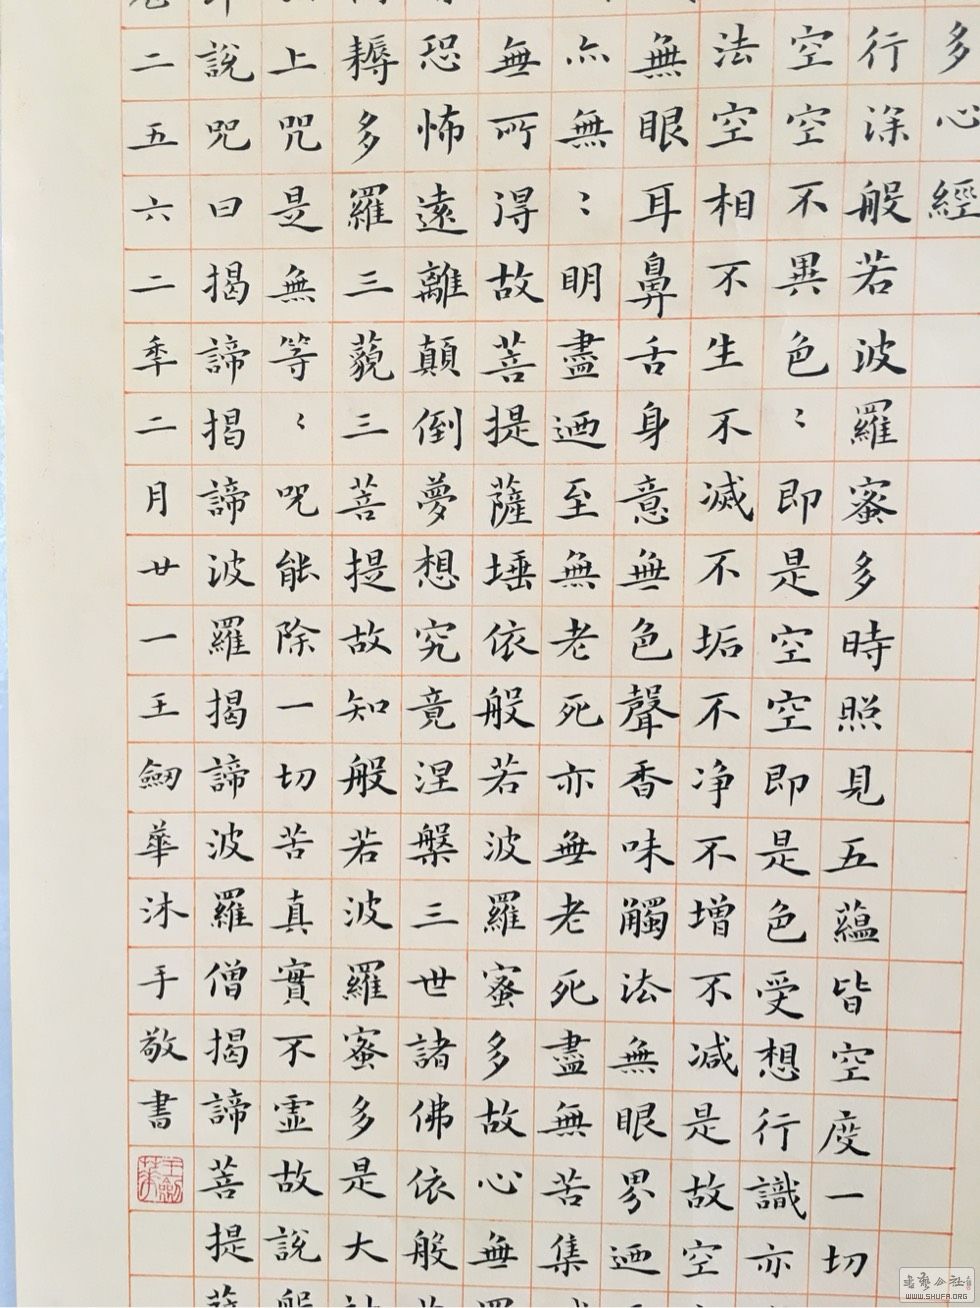 多心經
行深般若波羅蜜多時照見五蘊皆空度一切
空空不異色〻即是空空即是色受想行識亦
法空相不生不滅不垢不净不增不减是故空
無眼耳鼻舌身意無色聲香味觸法無眼界迺
亦無〻明盡迺至無老死亦無老死盡無苦集
無所得故菩提薩埵依般若波羅蜜多故心無
恐怖遠離顛倒夢想究竟涅槃三世諸佛依般
耨多羅三藐三菩提故知般若波羅蜜多是大
上咒是無等〻咒能除一切苦真實不虛故說
說咒曰揭諦揭諦波羅揭諦波羅僧揭諦菩提
二五六二季二月廿一王劒華沐手敬書
書藝公社
WWW.SHUFA.ORG